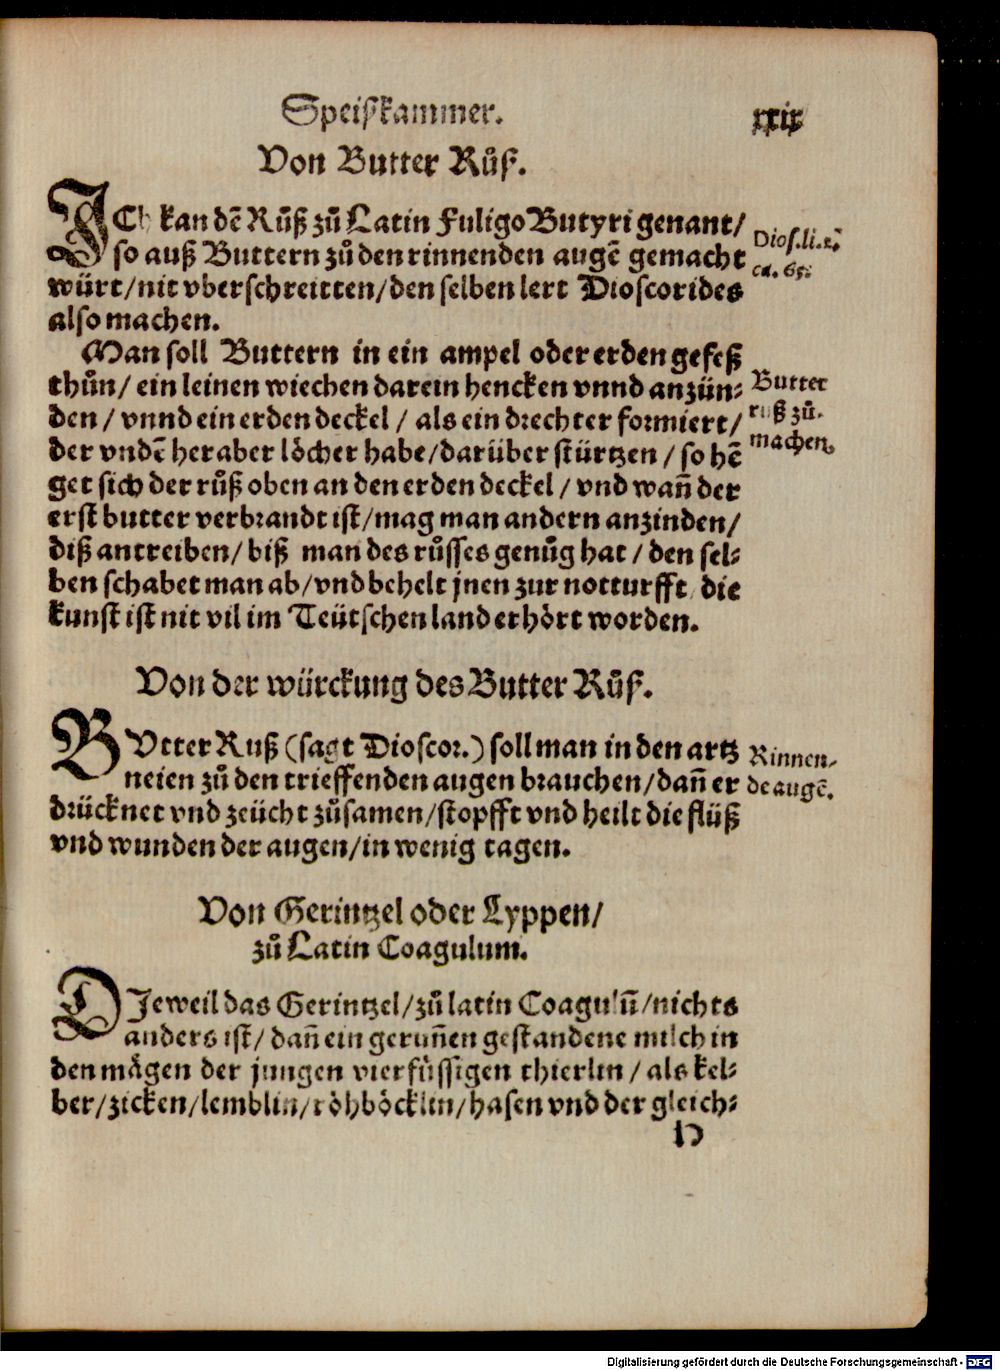 Speiſkammer. xxix
Von Butter Růſ.
ICh kan dẽ Růß zů Latin Fuligo Butyri genant/
ſo auß Buttern zů den rinnenden augẽ gemacht
würt/nit vberſchreitten/den ſelben lert Dioſcorides
alſo machen.
Dioſ.li.2.
ca. 65.
Man ſoll Buttern in ein ampel oder erden gefeß
thůn/ ein leinen wiechen darein hencken vnnd anzün⸗
den / vnnd ein erden deckel / als ein drechter formiert/
der vndẽ her aber lôcher habe/darüber ſtürtzen / ſo hẽ
get ſich der růß oben an den erden deckel / vnd wañ der
erſt butter verbrandt iſt/mag man andern anzinden/
diß antreiben/ biß man des růſſes genůg hat / den ſel⸗
ben ſchabet man ab/vnd behelt jnen zur notturfft die
kunſt iſt nit vil im Teütſchen land erhôrt worden.
Butter
ruß zů
machen.
Von der würckung des Butter Růſ.
BVtter Ruß (ſagt Dioſcor.) ſoll man in den artz
neien zů den trieffenden augen brauchen/dañ er
drücknet vnd zeücht zůſamen/ſtopfft vnd heilt die flüß
vnd wunden der augen/in wenig tagen.
Rinnen⸗
de augẽ.
Von Gerintzel oder Lyppen/
zů Latin Coagulum.
DJeweil das Gerintzel/zů latin Coagulũ/nichts
anders iſt/ dañ ein geruñen geſtandene milch in
den mâgen der jungen vierfůſſigen thierlin / als kel⸗
ber/zicken/lemblin/rôhbôcklin/haſen vnd der gleich⸗
H
Digitalisierung gefördert durch die Deutsche Forschungsgemeinschaft - DFG